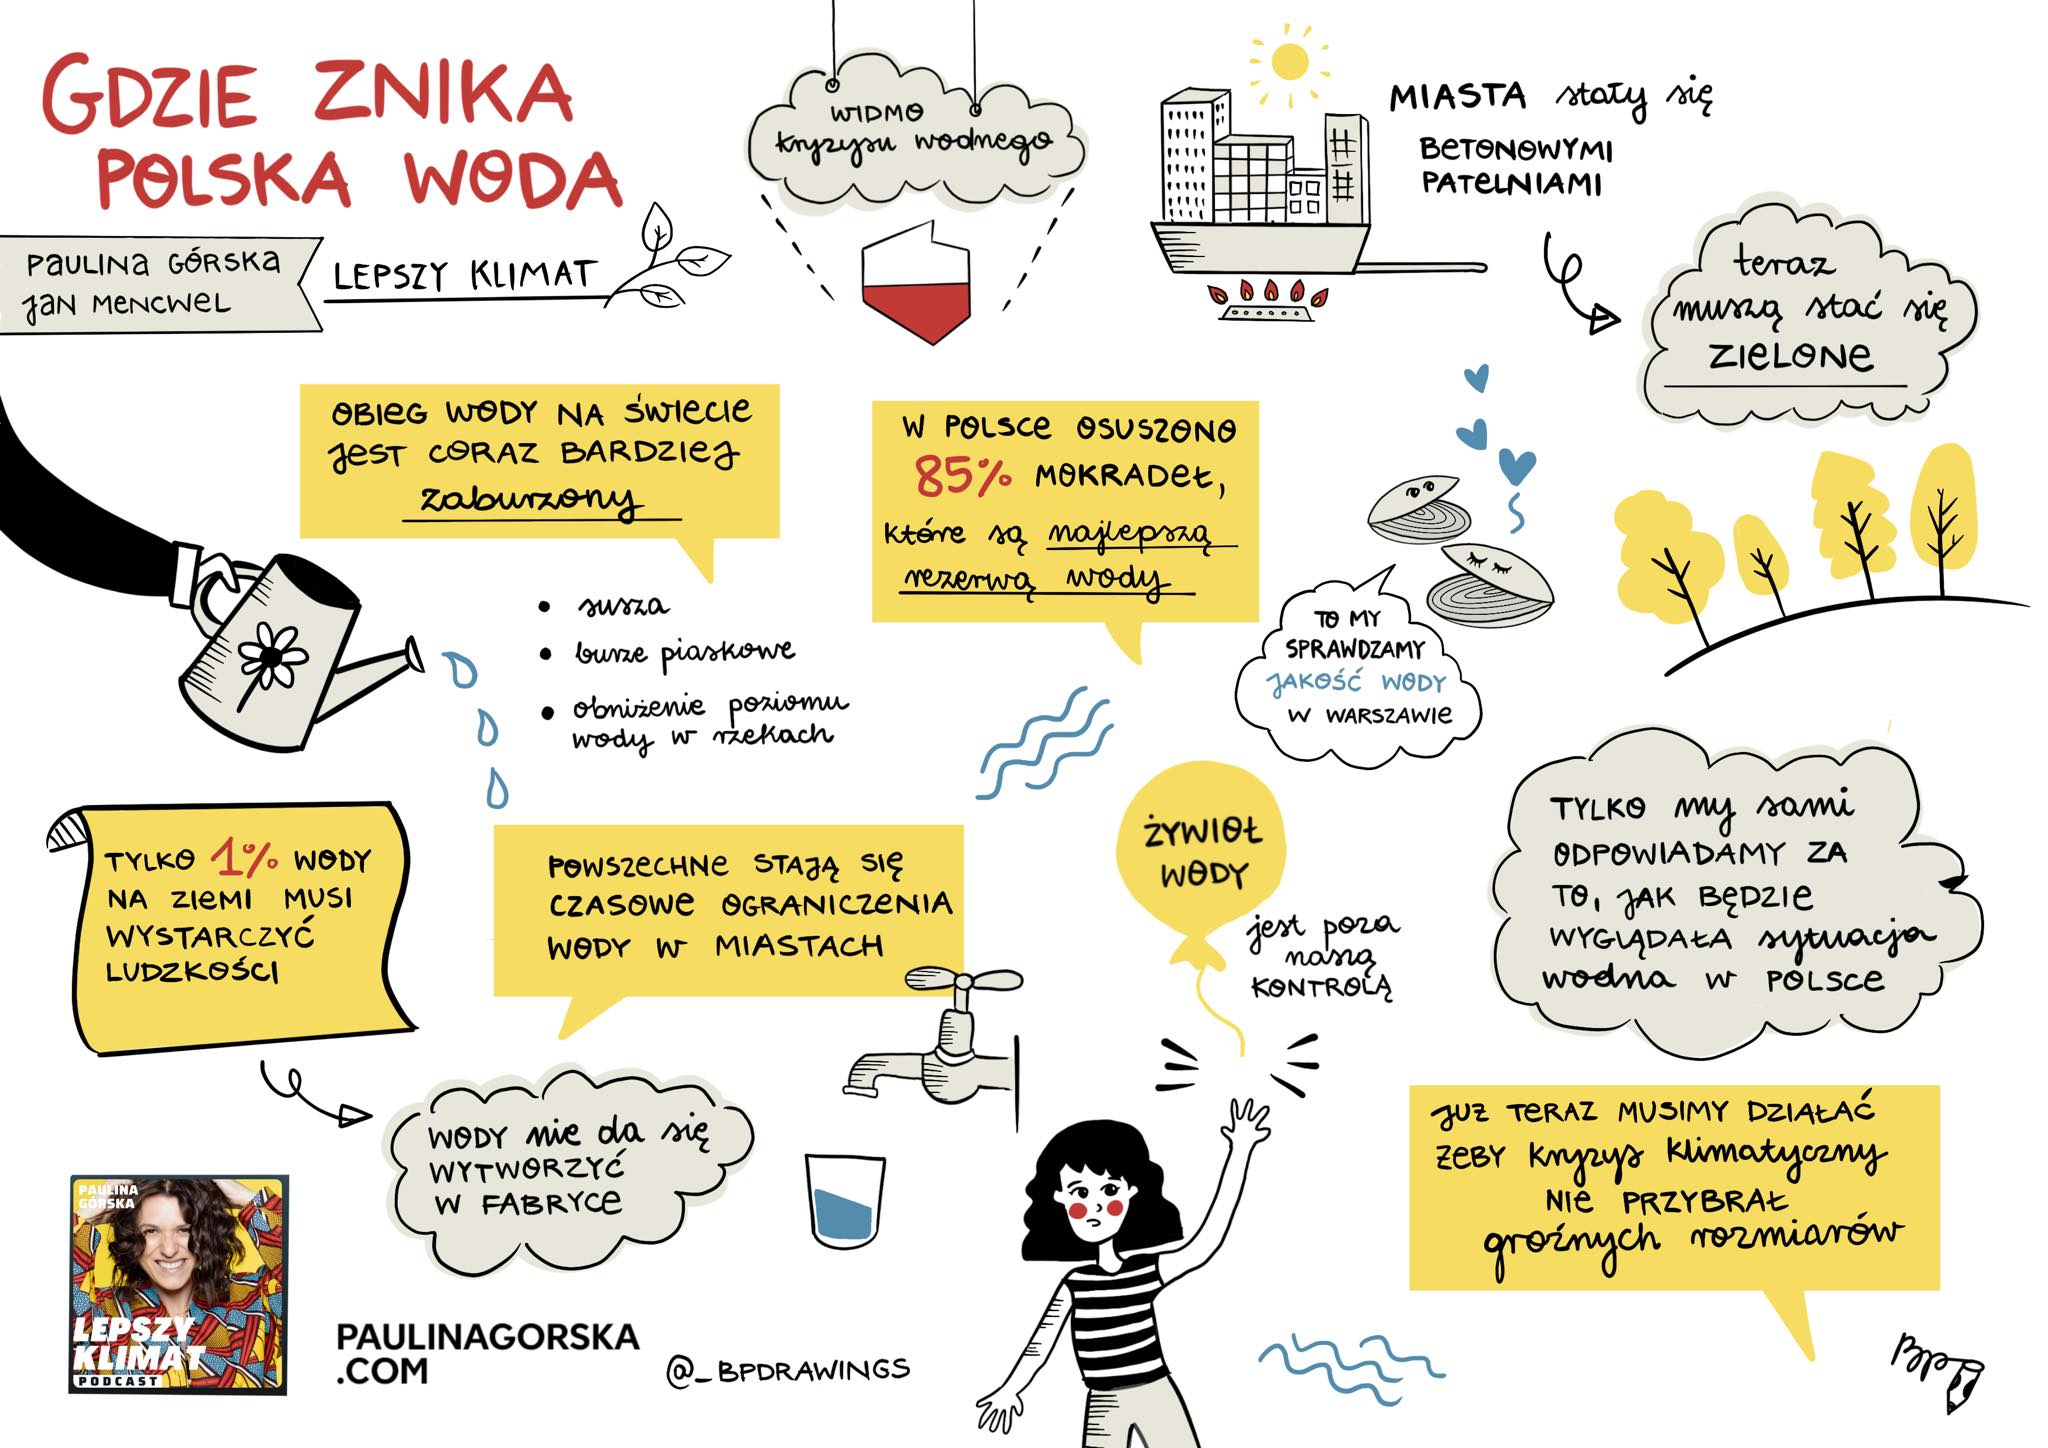 GDZIE ZNIKA
POLSKA WODA
PAULINA GÓRSKA
JAN MENCWEL
LEPSZY KLIMAT
WIDMO
kryzysu wodnego
MIASTA stały się
BETONOWYMI
PATELNIAMI
teraz
muszą stać się
ZIELONE
OBIEG WODY NA ŚWIECIE
JEST CORAZ BARDZIEJ
zaburzony
• susza
• burze piaskowe
• obniżenie poziomu
wody w rzekach
W POLSCE OSUSZONO
85% MOKRADEŁ,
które są najlepszą
rezerwą wody
TO MY
SPRAWDZAMY
JAKOŚĆ WODY
W WARSZAWIE
TYLKO 1% WODY
NA ZIEMI MUSI
WYSTARCZYĆ
LUDZKOŚCI
WODY nie da się
WYTWORZYĆ
W FABRYCE
POWSZECHNE STAJĄ SIĘ
CZASOWE OGRANICZENIA
WODY W MIASTACH
ŻYWIOŁ
WODY
jest poza
naszą
KONTROLĄ
TYLKO my sami
ODPOWIADAMY ZA
TO, JAK BĘDZIE
WYGLĄDAŁA sytuacja
wodna w POLSCE
JUŻ TERAZ MUSIMY DZIAŁAĆ
ŻEBY kryzys klimatyczny
NIE PRZYBRAŁ
groźnych rozmiarów
PAULINA
GÓRSKA
LEPSZY
KLIMAT
PODCAST
PAULINAGORSKA
.COM
@_BPDRAWINGS
BP